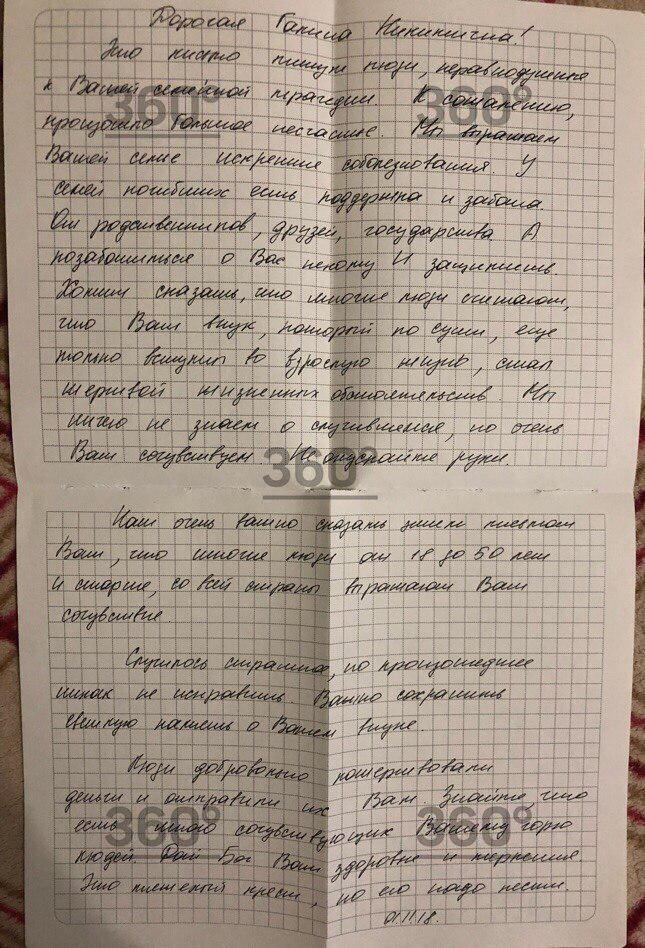 Дорогая Галина Никитична!
Это письмо пишут люди, неравнодушные
к Вашей семейной трагедии. К сожалению,
360° 360°
произошло большое несчастье. Мы выражаем
Вашей семье искренние соболезнования. У
семей погибших есть поддержка и забота.
От родственников, друзей, государства. А
позаботиться о Вас некому И защитить.
Хотим сказать, что многие люди считают,
что Ваш внук, который по сути, еще
только вступил во взрослую жизнь, стал
жертвой жизненных обстоятельств. Мы
ничего не знаем о случившемся, но очень
Вам сочувствуем. Не опускайте руки.
360°
Нам очень важно сказать этим письмом
Вам, что многие люди от 18 до 50 лет
и старше, со всей страны выражают Вам
сочувствие
Случилось страшное, но произошедшее
никак не исправить. Важно сохранить
светлую память о Вашем внуке.
Люди добровольно пожертвовали
деньги и отправили их Вам Знайте, что
есть много сочувствующих Вашему горю
360° 360°
людей. Дай Бог Вам здоровья и терпения.
Это тяжелый крест, но его надо нести.
01.11.18.